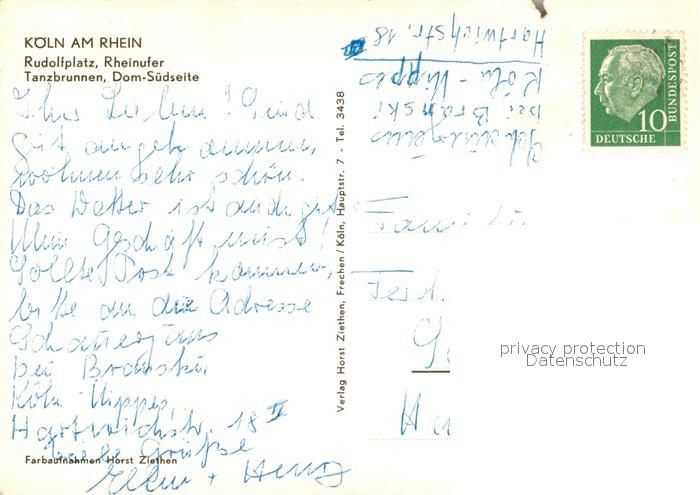 KÖLN AM RHEIN
Rudolfplatz, Rheinufer
Tanzbrunnen, Dom-Südseite
Ihr Lieben! Sind
gut angekommen,
wohnen sehr schön.
Das Wetter ist auch gut.
Nun Geschäft mist!
Sollte Post kommen,
bitte an die Adresse
bei Bronski
Köln Nippes
Hartwichstr. 18 II
Viele Grüße
+ Heinz
Farbaufnahmen Horst Ziethen
Verlag Horst Ziethen, Frechen/Köln, Hauptstr. 7 - Tel. 3438
bei Bronski
Köln-Nippes
Hartwichstr. 18
II
10
DEUTSCHE
BUNDESPOST
privacy protection
Datenschutz